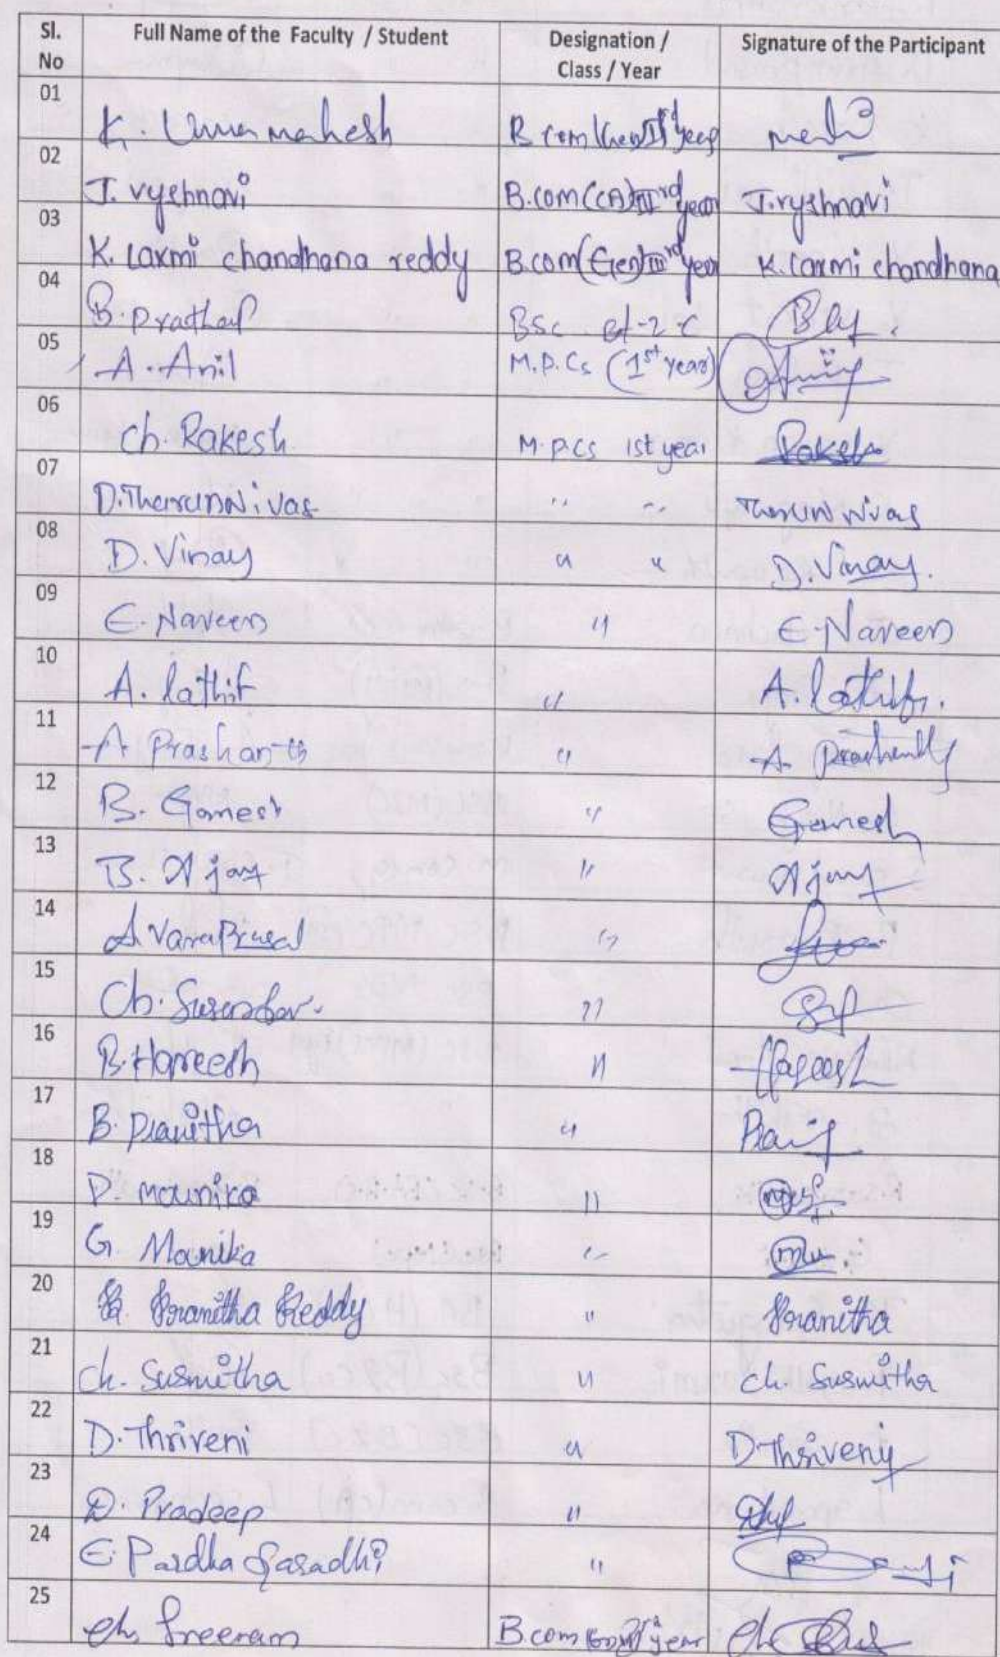 Sl. No Full Name of the Faculty / Student Designation / Class / Year Signature of the Participant
01 K. Uma mahesh B.com year
02 J. vyshnavi B.com (CA) IIIrd year J. vyshnavi
03 K. Laxmi chandhana reddy B.com (Gen) IIIrd year K. Laxmi chandhana
04 B. Prathap BSc
05 A. Anil M.P.Cs (1st year)
06 Ch. Rakesh M.P.Cs 1st year Rakesh
07 D. TharunNivas " " Tharun Nivas
08 D. Vinay " " D. Vinay.
09 E. Naveen " E. Naveen
10 A. lathif " A. lathif.
11 A Prashanth " A Prashanth
12 B. Ganesh " Ganesh
13 B. Ajay " Ajay
14 A. VaraPrasad "
15 Ch. "
16 B. Hareesh " Hareesh
17 B. Pranitha "
18 P. mounika "
19 G Mounika "
20 Pranitha Reddy " Pranitha
21 ch. Susmitha " ch. Susmitha
22 D. Thriveni " D Thriveny
23 D. Pradeep "
24 E. Pardha Sasadhi "
25 Ch. Sreeram B.com year